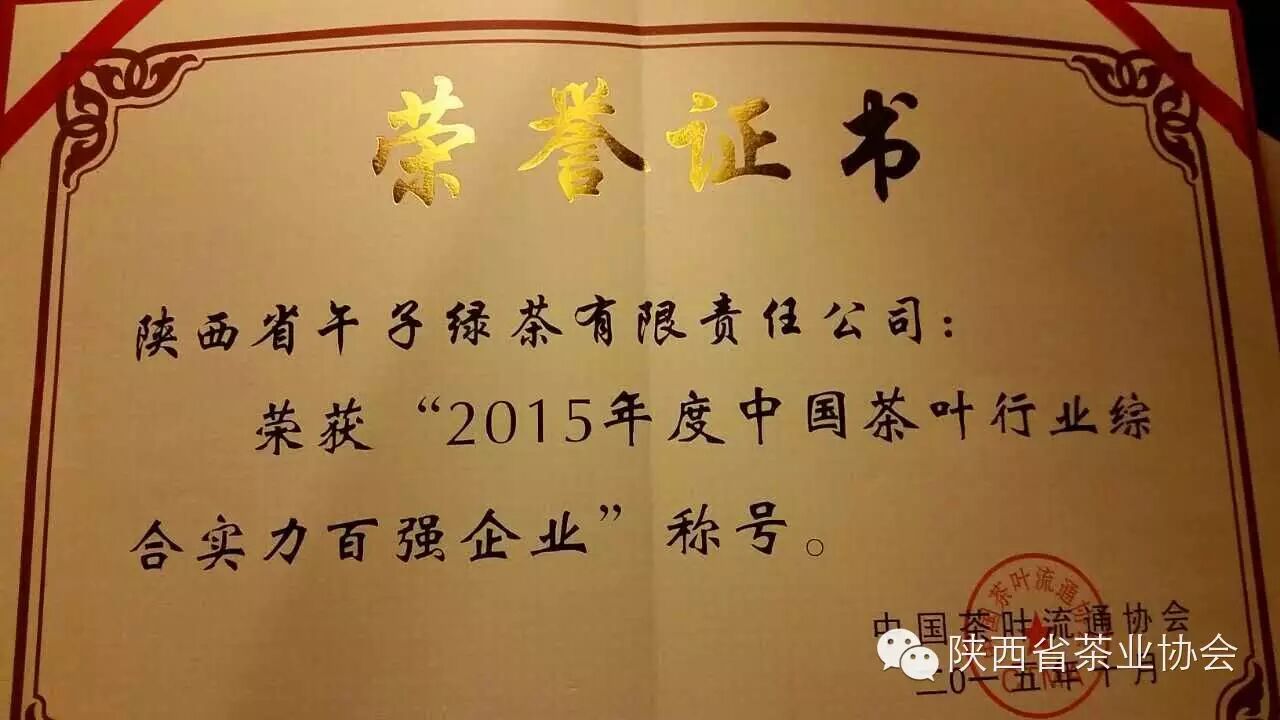 荣誉证书
陕西省午子绿茶有限责任公司：
荣获“2015年度中国茶叶行业综
合实力百强企业”称号。
中国茶叶流通协会
二0一五年十月
陕西省茶业协会